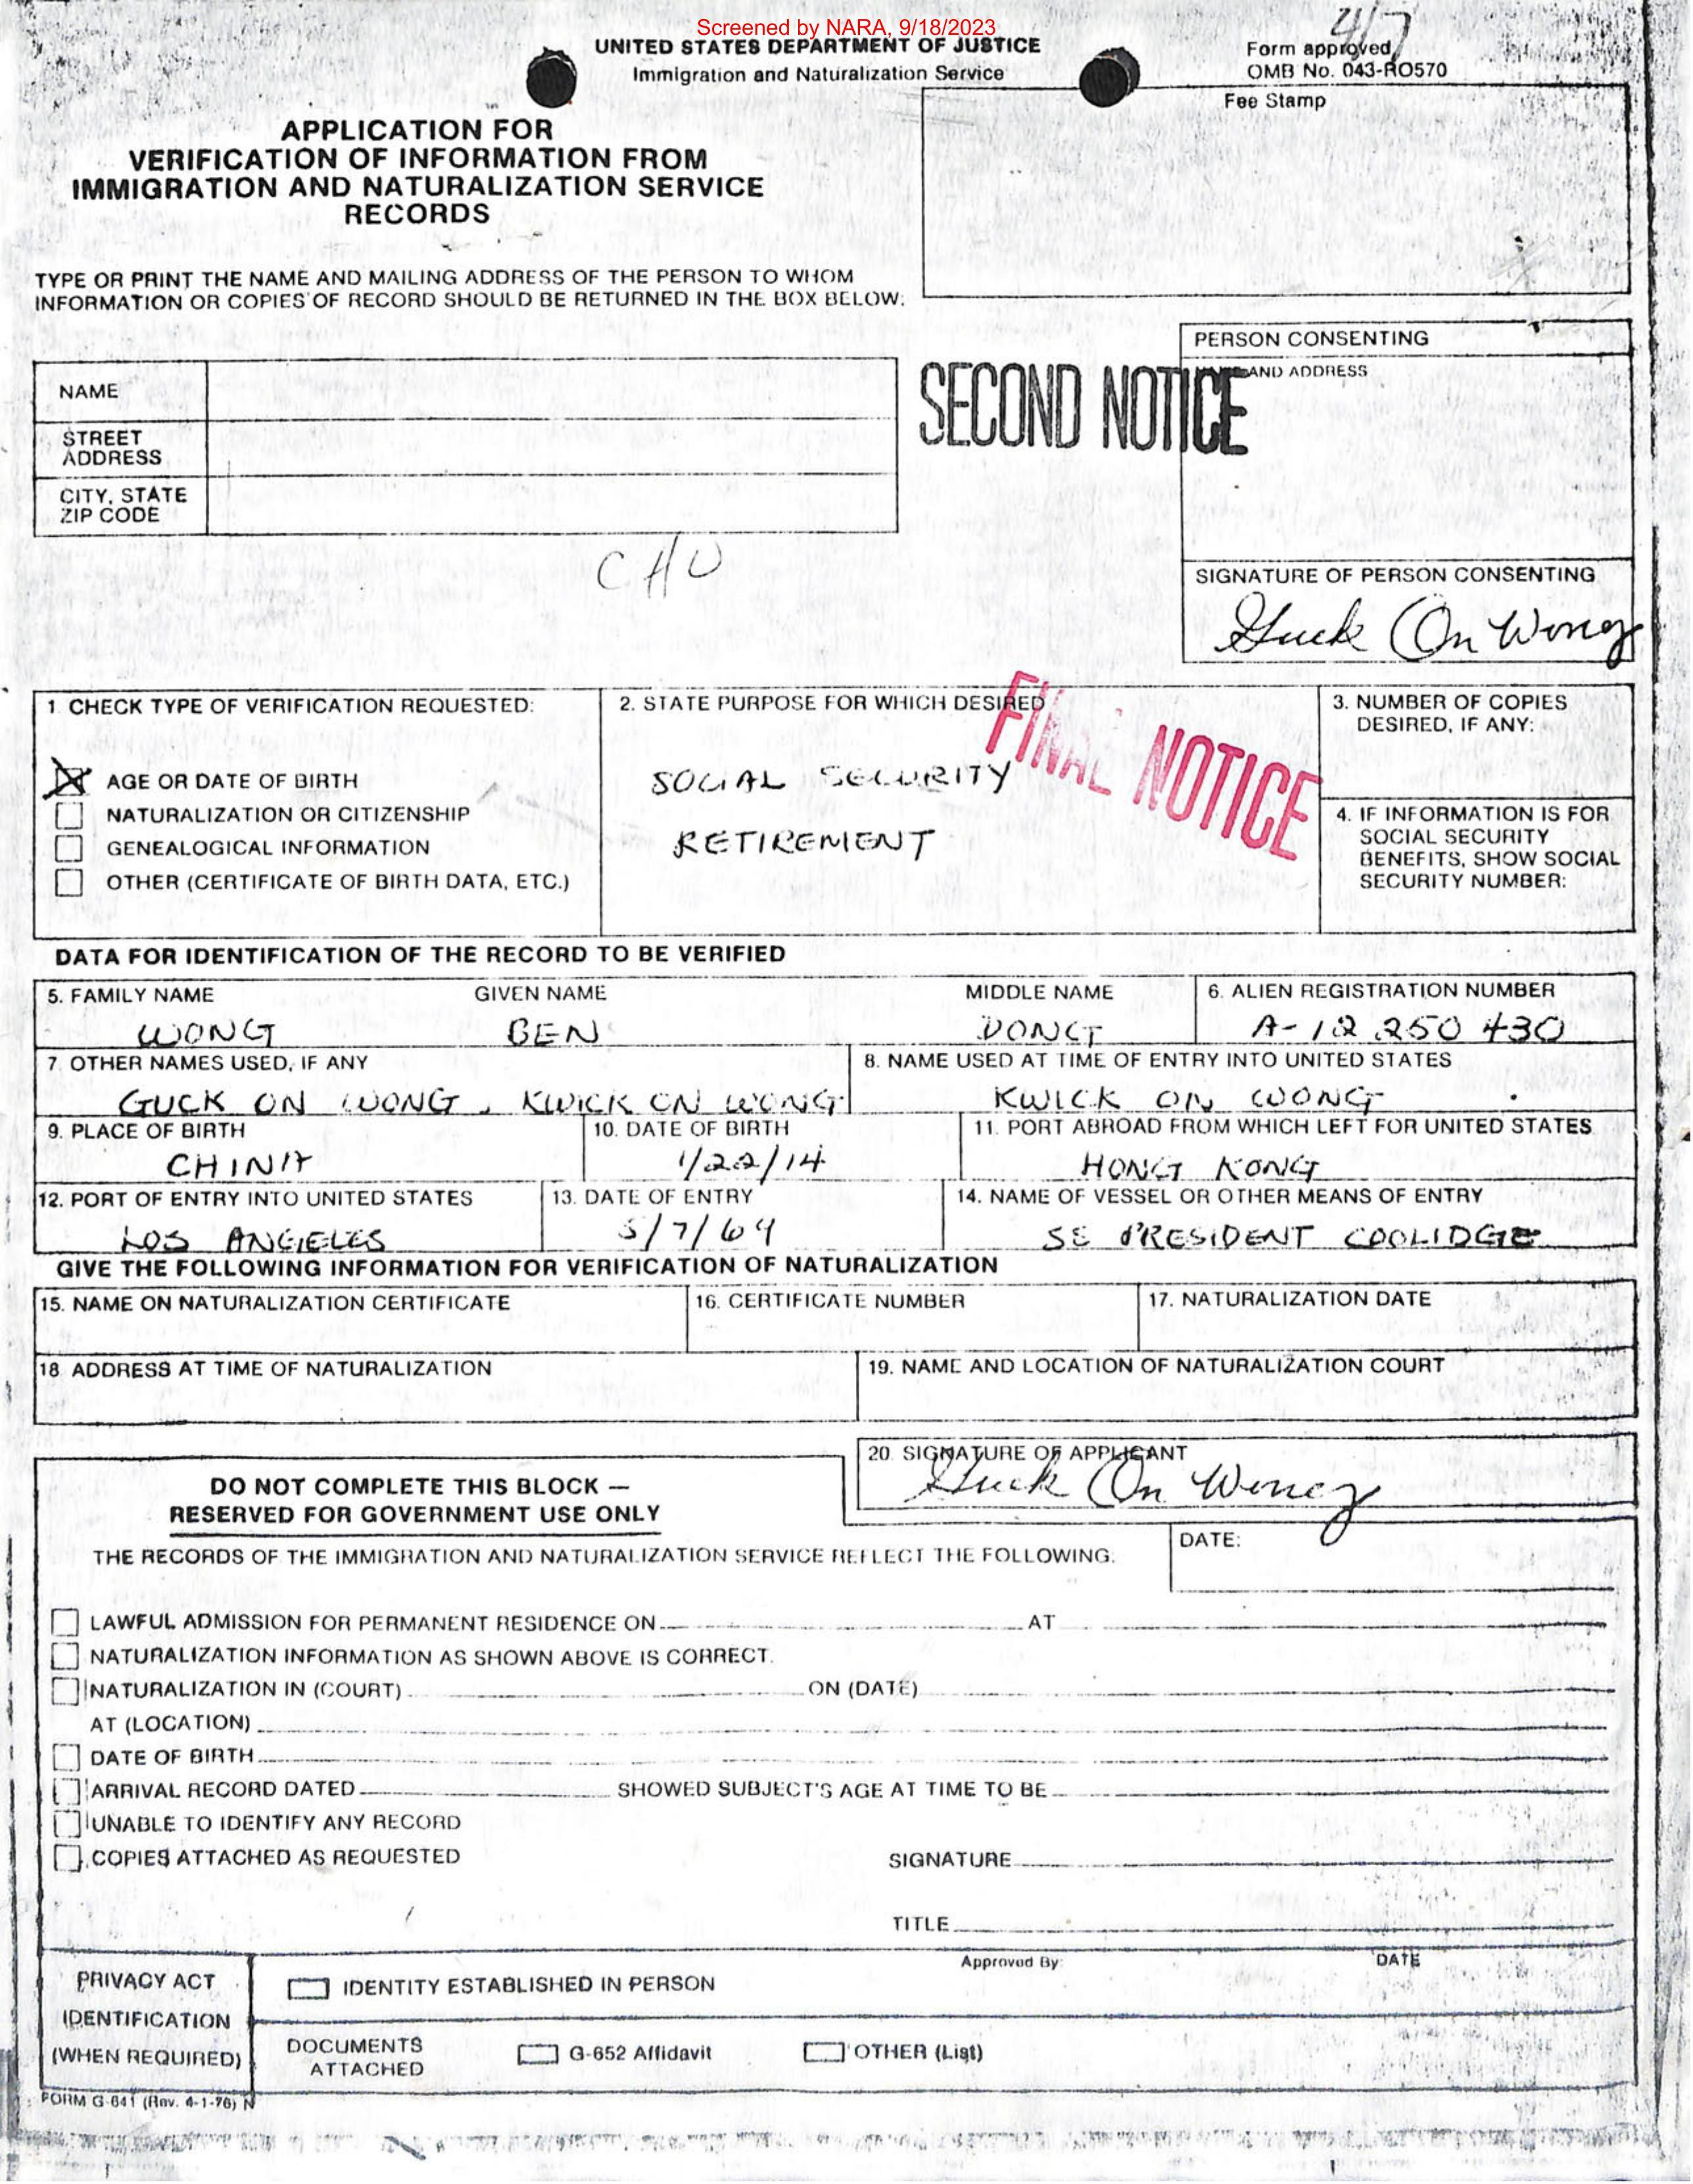 Screened by NARA, 9/18/2023
UNITED STATES DEPARTMENT OF JUSTICE
Immigration and Naturalization Service
Form approved
OMB No. 043-RO570
Fee Stamp
APPLICATION FOR
VERIFICATION OF INFORMATION FROM
IMMIGRATION AND NATURALIZATION SERVICE
RECORDS
TYPE OR PRINT THE NAME AND MAILING ADDRESS OF THE PERSON TO WHOM
INFORMATION OR COPIES OF RECORD SHOULD BE RETURNED IN THE BOX BELOW:
NAME
STREET
ADDRESS
CITY, STATE
ZIP CODE
SECOND NOTICE
PERSON CONSENTING
AND ADDRESS
CHU
SIGNATURE OF PERSON CONSENTING
Guck On Wong
1. CHECK TYPE OF VERIFICATION REQUESTED:
AGE OR DATE OF BIRTH
NATURALIZATION OR CITIZENSHIP
GENEALOGICAL INFORMATION
OTHER (CERTIFICATE OF BIRTH DATA, ETC.)
2. STATE PURPOSE FOR WHICH DESIRED
SOCIAL SECURITY
RETIREMENT
FINAL NOTICE
3. NUMBER OF COPIES
DESIRED, IF ANY:
4. IF INFORMATION IS FOR
SOCIAL SECURITY
BENEFITS, SHOW SOCIAL
SECURITY NUMBER:
DATA FOR IDENTIFICATION OF THE RECORD TO BE VERIFIED
5. FAMILY NAME GIVEN NAME MIDDLE NAME 6. ALIEN REGISTRATION NUMBER
WONG BEN DONG A-12 250 430
7. OTHER NAMES USED, IF ANY 8. NAME USED AT TIME OF ENTRY INTO UNITED STATES
GUCK ON WONG, KWICK ON WONG KWICK ON WONG
9. PLACE OF BIRTH 10. DATE OF BIRTH 11. PORT ABROAD FROM WHICH LEFT FOR UNITED STATES
CHINA 1/22/14 HONG KONG
12. PORT OF ENTRY INTO UNITED STATES 13. DATE OF ENTRY 14. NAME OF VESSEL OR OTHER MEANS OF ENTRY
LOS ANGELES 5/7/64 SS PRESIDENT COOLIDGE
GIVE THE FOLLOWING INFORMATION FOR VERIFICATION OF NATURALIZATION
15. NAME ON NATURALIZATION CERTIFICATE 16. CERTIFICATE NUMBER 17. NATURALIZATION DATE
18. ADDRESS AT TIME OF NATURALIZATION 19. NAME AND LOCATION OF NATURALIZATION COURT
20. SIGNATURE OF APPLICANT
Guck On Wong
DO NOT COMPLETE THIS BLOCK —
RESERVED FOR GOVERNMENT USE ONLY
DATE:
THE RECORDS OF THE IMMIGRATION AND NATURALIZATION SERVICE REFLECT THE FOLLOWING:
LAWFUL ADMISSION FOR PERMANENT RESIDENCE ON AT
NATURALIZATION INFORMATION AS SHOWN ABOVE IS CORRECT.
NATURALIZATION IN (COURT) ON (DATE)
AT (LOCATION)
DATE OF BIRTH
ARRIVAL RECORD DATED SHOWED SUBJECT'S AGE AT TIME TO BE
UNABLE TO IDENTIFY ANY RECORD
COPIES ATTACHED AS REQUESTED
SIGNATURE
TITLE
Approved By: DATE
PRIVACY ACT
IDENTIFICATION
(WHEN REQUIRED)
IDENTITY ESTABLISHED IN PERSON
DOCUMENTS
ATTACHED
G-652 Affidavit OTHER (List)
FORM G-641 (Rev. 4-1-76) N